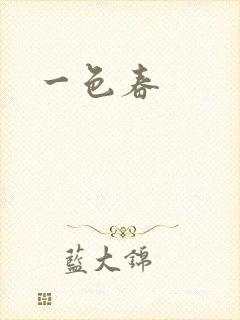 一色春
藍大錦